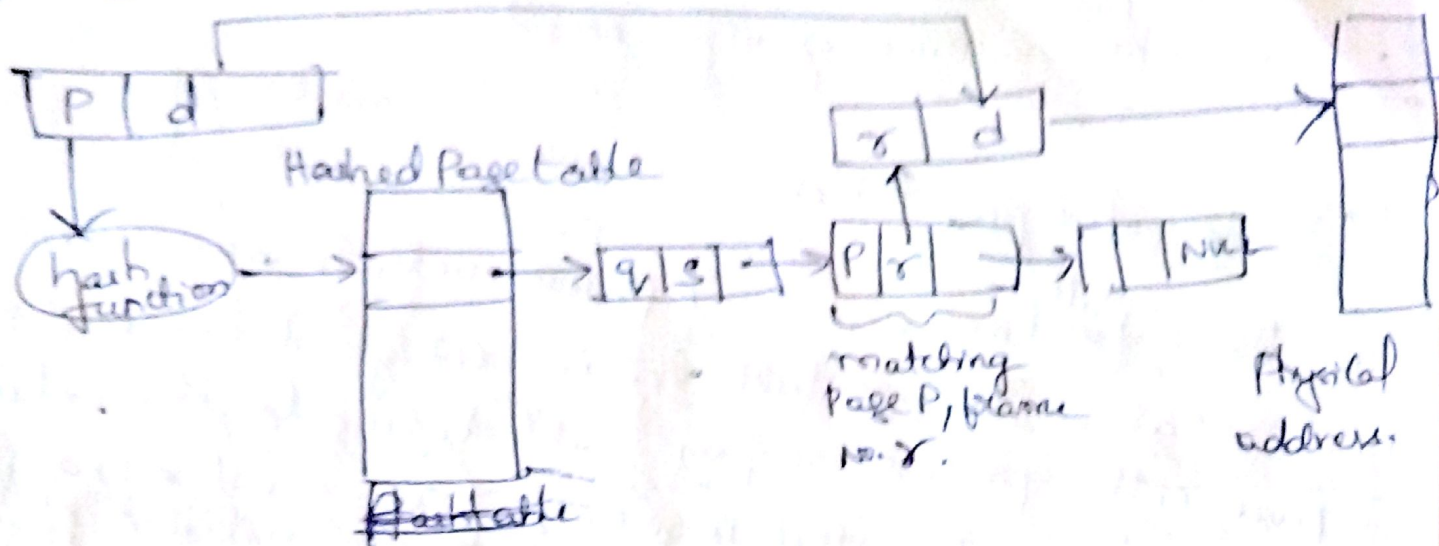 P d
Hashed Page table
r d
hash function
q s
P r
Nu
matching
Page P, frame
no. r.
Physical
address.
Hash table